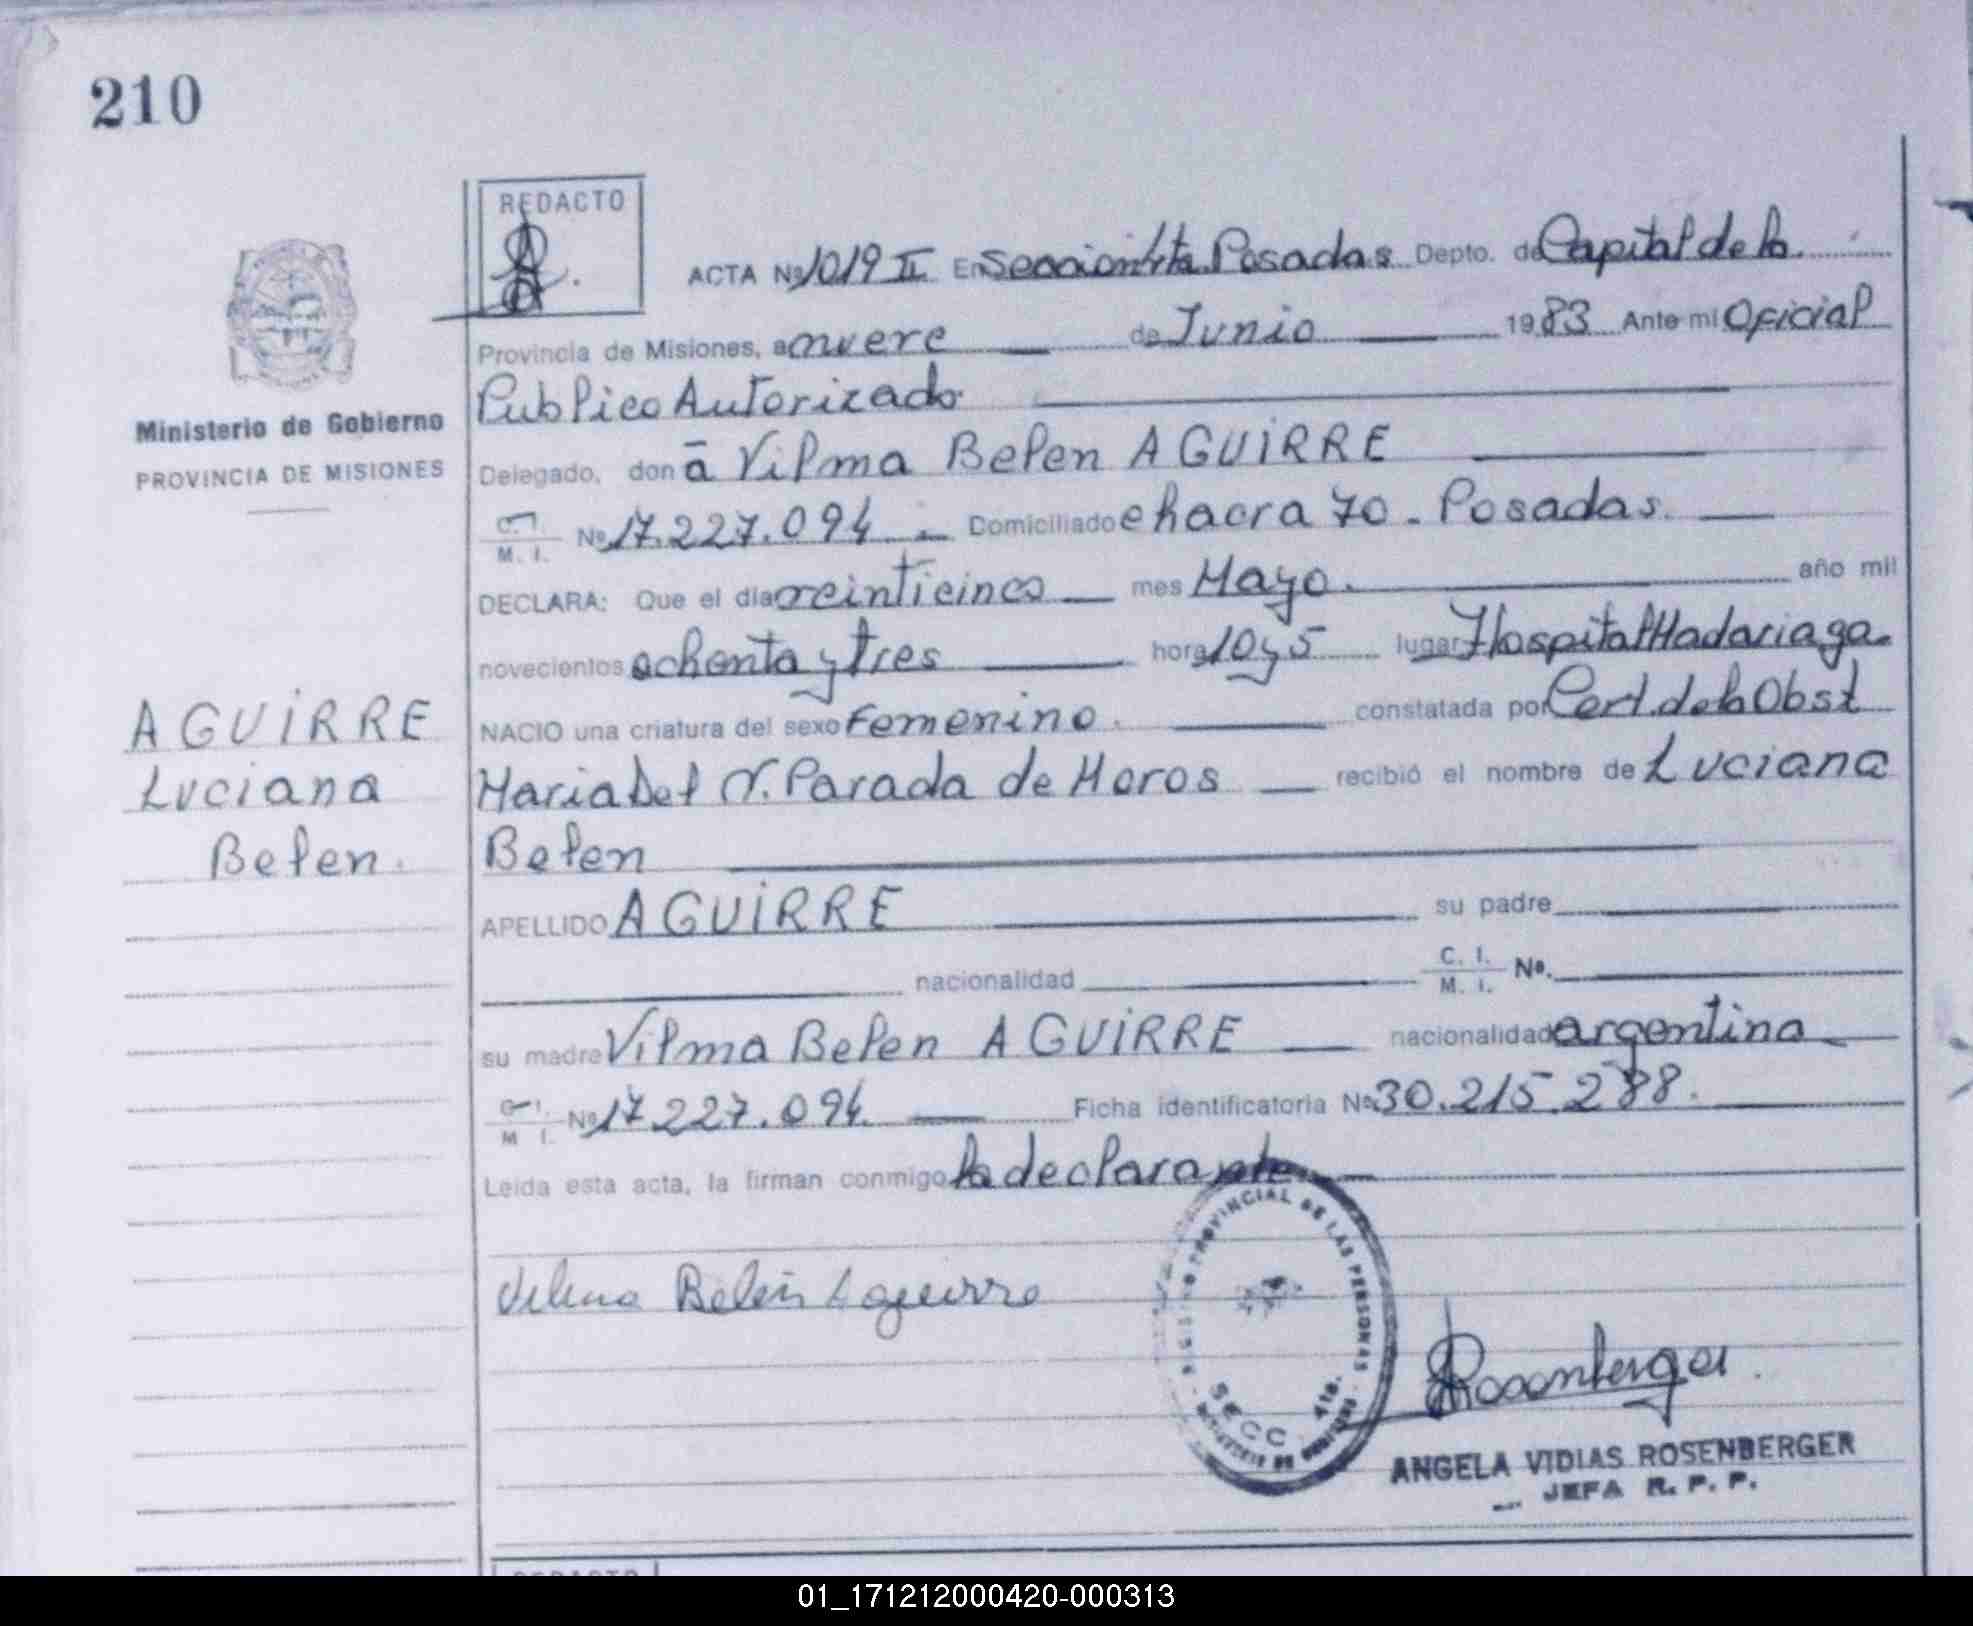 210
REDACTO
ACTA Nº 1019 II En Sección 4ta Posadas Depto. de Capital de la
Provincia de Misiones, a nueve de Junio 1983 Ante mi Oficial
Publico Autorizado
Ministerio de Gobierno
PROVINCIA DE MISIONES
Delegado, don a Vilma Belen AGUIRRE
C. I.
M. I. Nº 17.227.094 Domiciliado chacra 70 - Posadas.
DECLARA: Que el dia veinticinco mes Mayo. año mil
novecientos ochenta y tres hora 10 y 5 lugar Hospital Madariaga.
NACIO una criatura del sexo Femenino. constatada por Cert. de la Obst
Maria Del V. Parada de Moros recibió el nombre de Luciana
Belen
AGUIRRE
Luciana
Belen.
APELLIDO AGUIRRE su padre
nacionalidad C. I. M. I. Nº.
su madre Vilma Belen AGUIRRE nacionalidad argentina
C. I.
M. I. Nº 17.227.094. Ficha identificatoria Nº 30.215.288.
Leida esta acta, la firman conmigo la declarante
Vilma Belén Aguirre
PROVINCIAL DE LAS PERSONAS
SECC. 4ta.
Rosenberger
ANGELA VIDIAS ROSENBERGER
JEFA R. P. P.
REDACTO
01_171212000420-000313